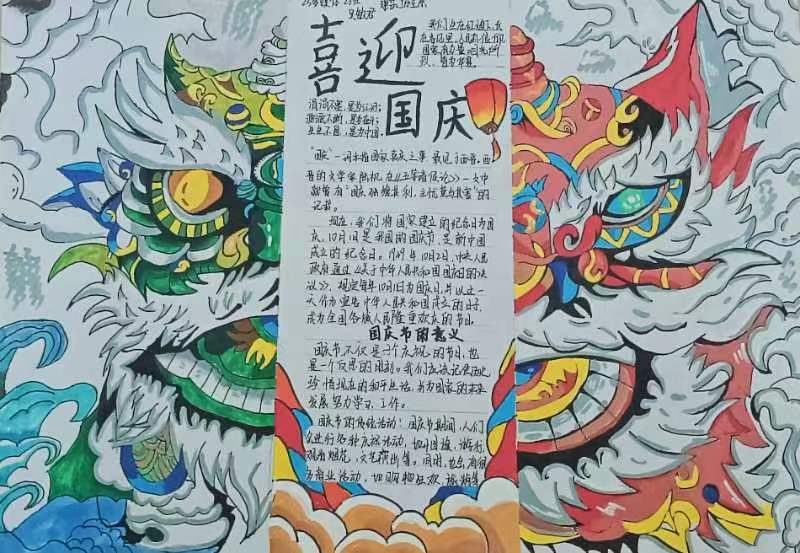 喜迎
国庆
"国庆"一词本指国家喜庆之事,最见于西晋。西
晋的文学家陆机在《五等诸侯论》一文中
就曾有"国庆独飨其利,主忧莫与其害"的
记载。
现在,我们将国家建立的纪念日为国
庆。10月1日是我国的国庆节,是新中国
成立的纪念日。1949年10月2日,中央人民
政府通过《关于中华人民共和国国庆日的决
议》,规定每年10月1日为国庆日,并以这一
天作为宣告中华人民共和国成立的日子,
成为全国各族人民隆重欢庆的节日。
国庆节的意义
国庆节不仅是一个庆祝的节日,也
是一个反思的时刻。我们应该记住历史,
珍惜现在的和平生活,并为国家的未来
发展努力学习、工作。
国庆节的庆祝活动:国庆节期间,人们
会进行各种庆祝活动,如升国旗、游行、
观看烟花、文艺演出等。同时,也会有很
多商业活动,如购物狂欢、